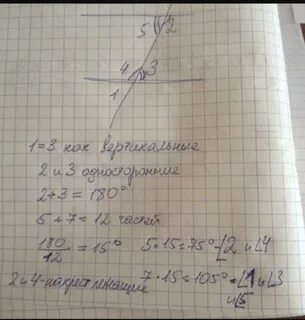 5 2
4 3
1
1=3 как вертикальные
2 и 3 односторонние
2+3=180°
5+7=12 частей
180/12=15° 5·15=75°-∠2 и ∠4
2 и 4-накрест лежащие 7·15=105°-∠1 и ∠3
и ∠5